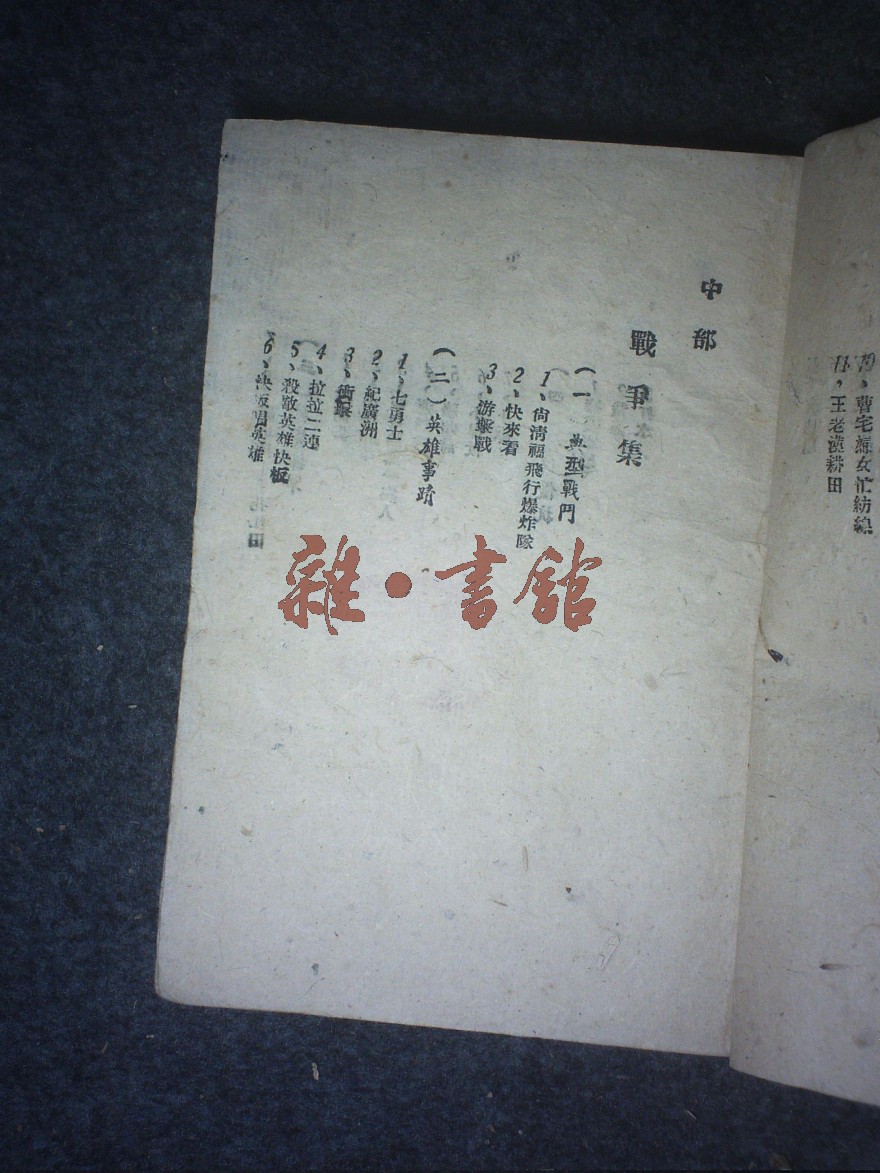 10、曹宅婦女忙紡綫
11、王老漢耕田
中部
戰爭集
(一)典型戰鬥
1、尙淸福飛行爆炸隊
2、快來看
3、游擊戰
(二)英雄事蹟
1、七勇士
2、紀廣洲
3、衝鋒
4、拉拉二連
5、殺敵英雄快板
6、快板唱英雄
雜·書館